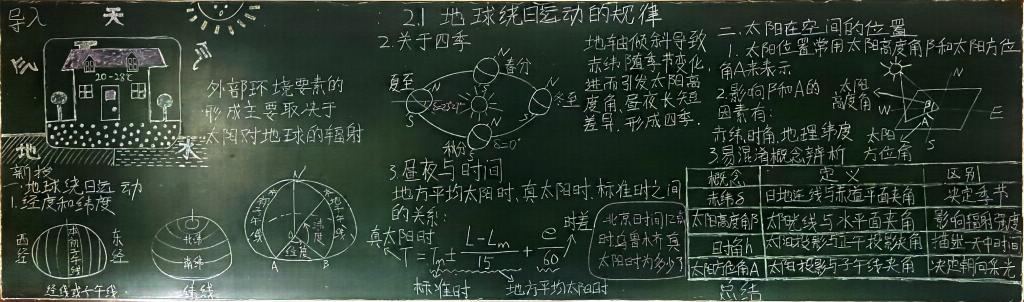 导入
天
气
20-28℃
地
水
外部环境要素的
形成主要取决于
太阳对地球的辐射
新授
一.地球绕日运动
1.经度和纬度
西经
本初子午线
东经
经线或子午线
北纬
南纬
纬线
N
纬度
经度
A
B
2.1 地球绕日运动的规律
2.关于四季
N
春分
夏至
冬至
S
秋分
δ=0°
地轴倾斜导致
赤纬随季节变化,
进而引发太阳高
度角,昼夜长短
差异,形成四季.
3.昼夜与时间
地方平均太阳时,真太阳时,标准时之间
的关系:
真太阳时
时差
T=Tm±(L-Lm)/15+e/60
标准时
地方平均太阳时
北京日时间12点
时乌鲁木齐真
太阳时为多少?
二.太阳在空间的位置
1.太阳位置常用太阳高度角β和太阳方位
角A来表示
2.影响β和A的
因素有:
赤纬,时角,地理纬度
太阳高度角
N
W
E
S
β
A
太阳方位角
3.易混淆概念辨析
概念 定义 区别
赤纬δ 日地连线与赤道平面夹角 决定季节
太阳高度角β 太阳光线与水平面夹角 影响辐射强度
时角h 太阳投影与正午投影夹角 描述一天中时间
太阳方位角A 太阳投影与子午线夹角 决定朝向采光
总结